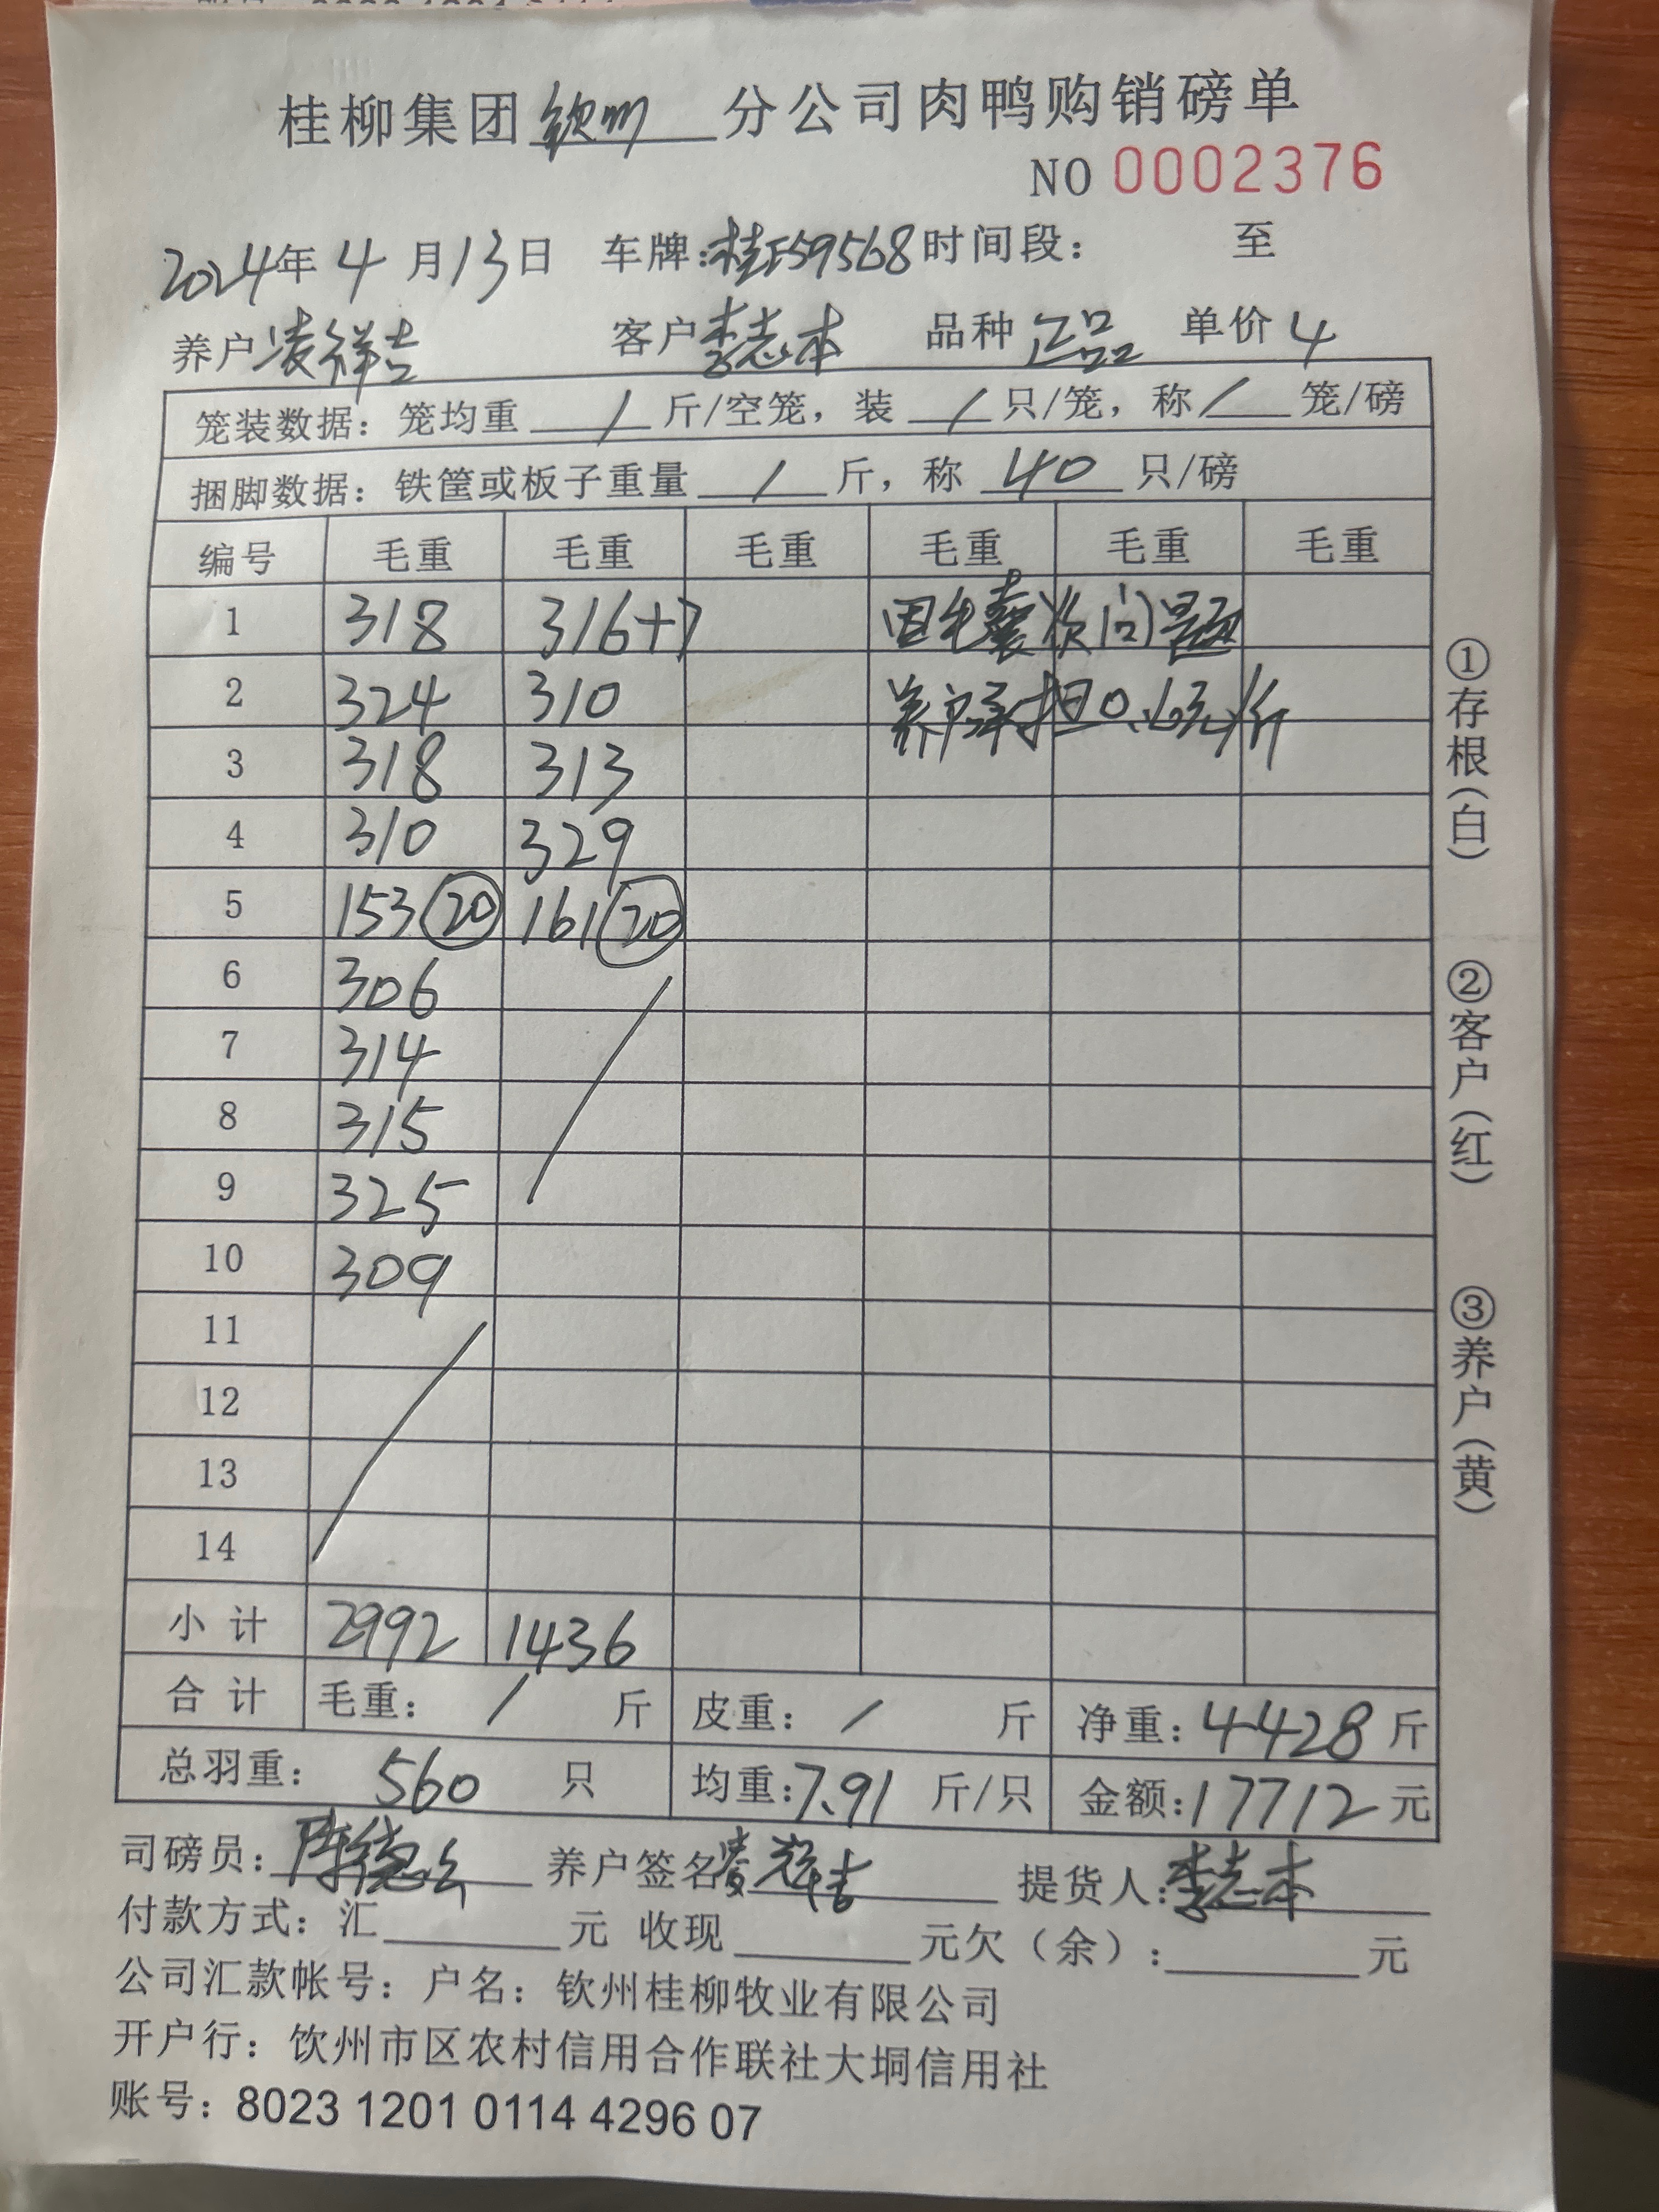 桂柳集团 钦州 分公司肉鸭购销磅单
NO 0002376
2024年 4 月 13日 车牌:桂F59568 时间段: 至
养户 凌祥吉 客户 李志本 品种 正品 单价 4
笼装数据：笼均重 / 斤/空笼，装 / 只/笼，称 / 笼/磅
捆脚数据：铁筐或板子重量 / 斤，称 40 只/磅
编号 毛重 毛重 毛重 毛重 毛重 毛重
1 318 316+7 因毛囊炎问题
2 324 310 养户承担0.6元/斤
3 318 313
4 310 329
5 153 20 161 20
6 306
7 314
8 315
9 325
10 309
11
12
13
14
小计 2992 1436
合计 毛重： / 斤 皮重： / 斤 净重：4428 斤
总羽重： 560 只 均重：7.91 斤/只 金额：17712 元
司磅员： 养户签名 提货人：李志本
付款方式：汇 元 收现 元欠（余）： 元
公司汇款帐号：户名：钦州桂柳牧业有限公司
开户行：饮州市区农村信用合作联社大垌信用社
账号：8023 1201 0114 4296 07
①存根（白）
②客户（红）
③养户（黄）